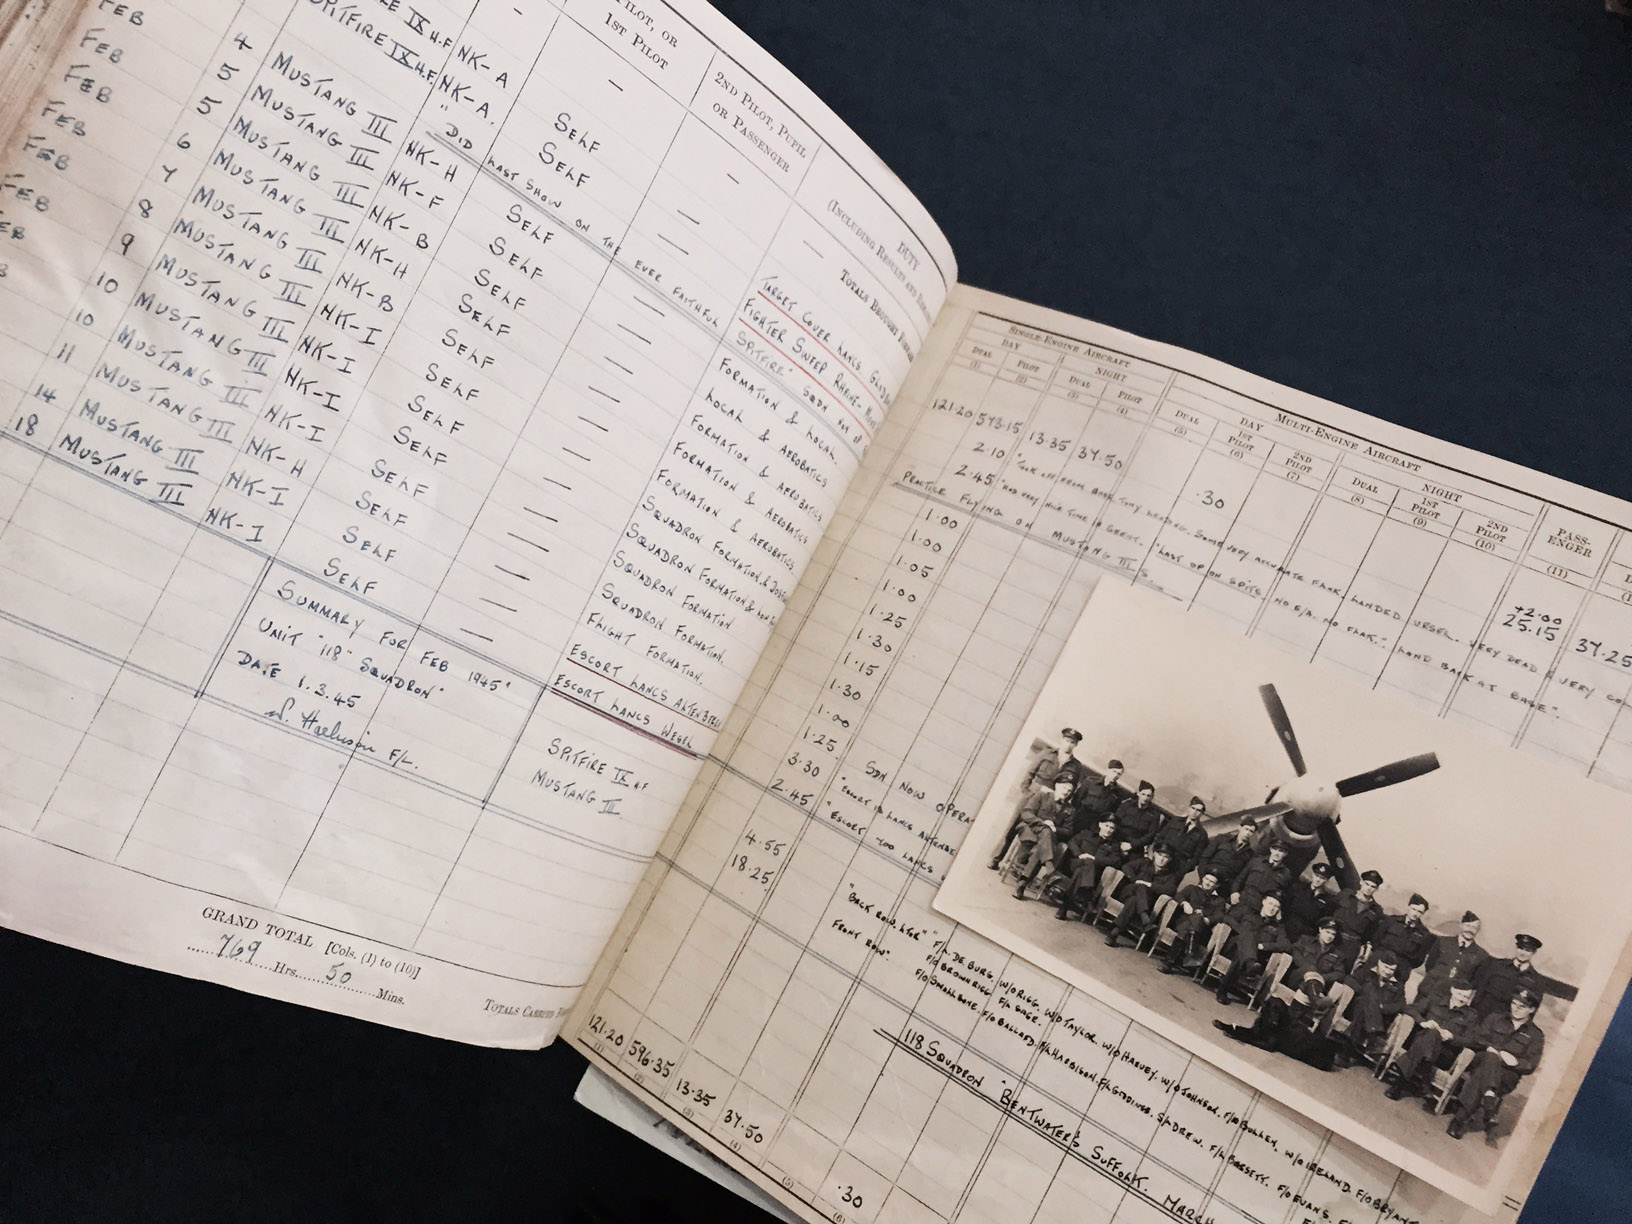 PILOT, OR
1ST PILOT
2ND PILOT, PUPIL
OR PASSENGER
DUTY
(INCLUDING RESULTS AND
TOTALS BROUGHT
FEB
SPITFIRE IX H.F. NK-A SELF — TARGET COVER LANCS.
FEB 4 MUSTANG III NK-A. SELF — FIGHTER SWEEP RHEINE-
"DID LAST SHOW ON THE EVER FAITHFUL SPITFIRE" SQDN NOT
FEB 5 MUSTANG III NK-H SELF — FORMATION & LOCAL.
FEB 5 MUSTANG III NK-F SELF — LOCAL & AEROBATICS
FEB 6 MUSTANG III NK-B SELF — FORMATION & AEROBATICS
FEB 7 MUSTANG III NK-H SELF — FORMATION & AEROBATICS
FEB 8 MUSTANG III NK-B SELF — FORMATION & AEROBATICS.
9 MUSTANG III NK-I SELF — SQUADRON FORMATION.&
10 MUSTANG III NK-I SELF — SQUADRON FORMATION &
10 MUSTANG III NK-I SELF — SQUADRON FORMATION
11 MUSTANG III NK-I SELF — SQUADRON FORMATION.
14 MUSTANG III NK-H SELF — FLIGHT FORMATION.
18 MUSTANG III NK-I SELF — ESCORT LANCS
NK-I SELF — ESCORT LANCS WESEL
SUMMARY FOR FEB 1945"
UNIT "118" SQUADRON"
DATE 1.3.45
F/L.
SPITFIRE IX H.F
MUSTANG III
GRAND TOTAL [Cols. (1) to (10)]
769 Hrs. 50 Mins.
TOTALS CARRIED
SINGLE-ENGINE AIRCRAFT
MULTI-ENGINE AIRCRAFT
PASS-
ENGER
DAY
NIGHT
DAY
NIGHT
DUAL
PILOT
DUAL
PILOT
DUAL
1ST
PILOT
2ND
PILOT
DUAL
1ST
PILOT
2ND
PILOT
(1) (2) (3) (4) (5) (6) (7) (8) (9) (10) (11)
121.20 573.15 13.35 37.50 .30 +2.00 25.15 37.25
2.10 "TOOK OFF FROM BASE. TONY LEADING. SOME VERY ACCURATE FLAK. LANDED URSEL. VERY DEAD & VERY
2.45 "HAD VERY NICE TIME IN GERM. "LAST OP ON SPITS. NO E/A. NO FLAK." LAND BACK AT BASE".
PRACTICE FLYING ON MUSTANG III S.
1.00
1.00
1.05
1.00
1.25
1.30
1.15
1.30
1.00
1.25 SDN NOW
3.30 "ESCORT LANCS
2.45 "ESCORT LANCS
4.55
18.25
"BACK ROW. LTOR" F/L. DE BURG. W/O RIGG. W/O TAYLOR. W/O HARVEY. W/O JOHNSON. F/O BULLEN. W/O IRELAND. F/O BRYANT
F/O BROWNRIGG F/L SAGE.
FRONT ROW". F/O SMALLBONE. F/O BALLARD. F/L HARBISON. F/L GIDDINGS. S/L DREW. F/L BASSETT. F/O EVANS.
118 SQUADRON "BENTWATERS SUFFOLK. MARCH
121.20 596.35 13.35 37.50 .30
(1) (2) (3) (4) (5) (6)